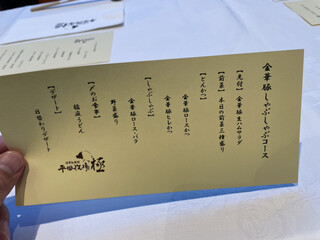 金華豚しゃぶしゃぶコース
【先付】金華豚生ハムサラダ
【前菜】本日の前菜三種盛り
【とんかつ】
金華豚ロースかつ
金華豚ヒレかつ
【しゃぶしゃぶ】
金華豚ロース・バラ
野菜盛り
【〆のお食事】
稲庭うどん
【デザート】
日替わりデザート
平田牧場
極